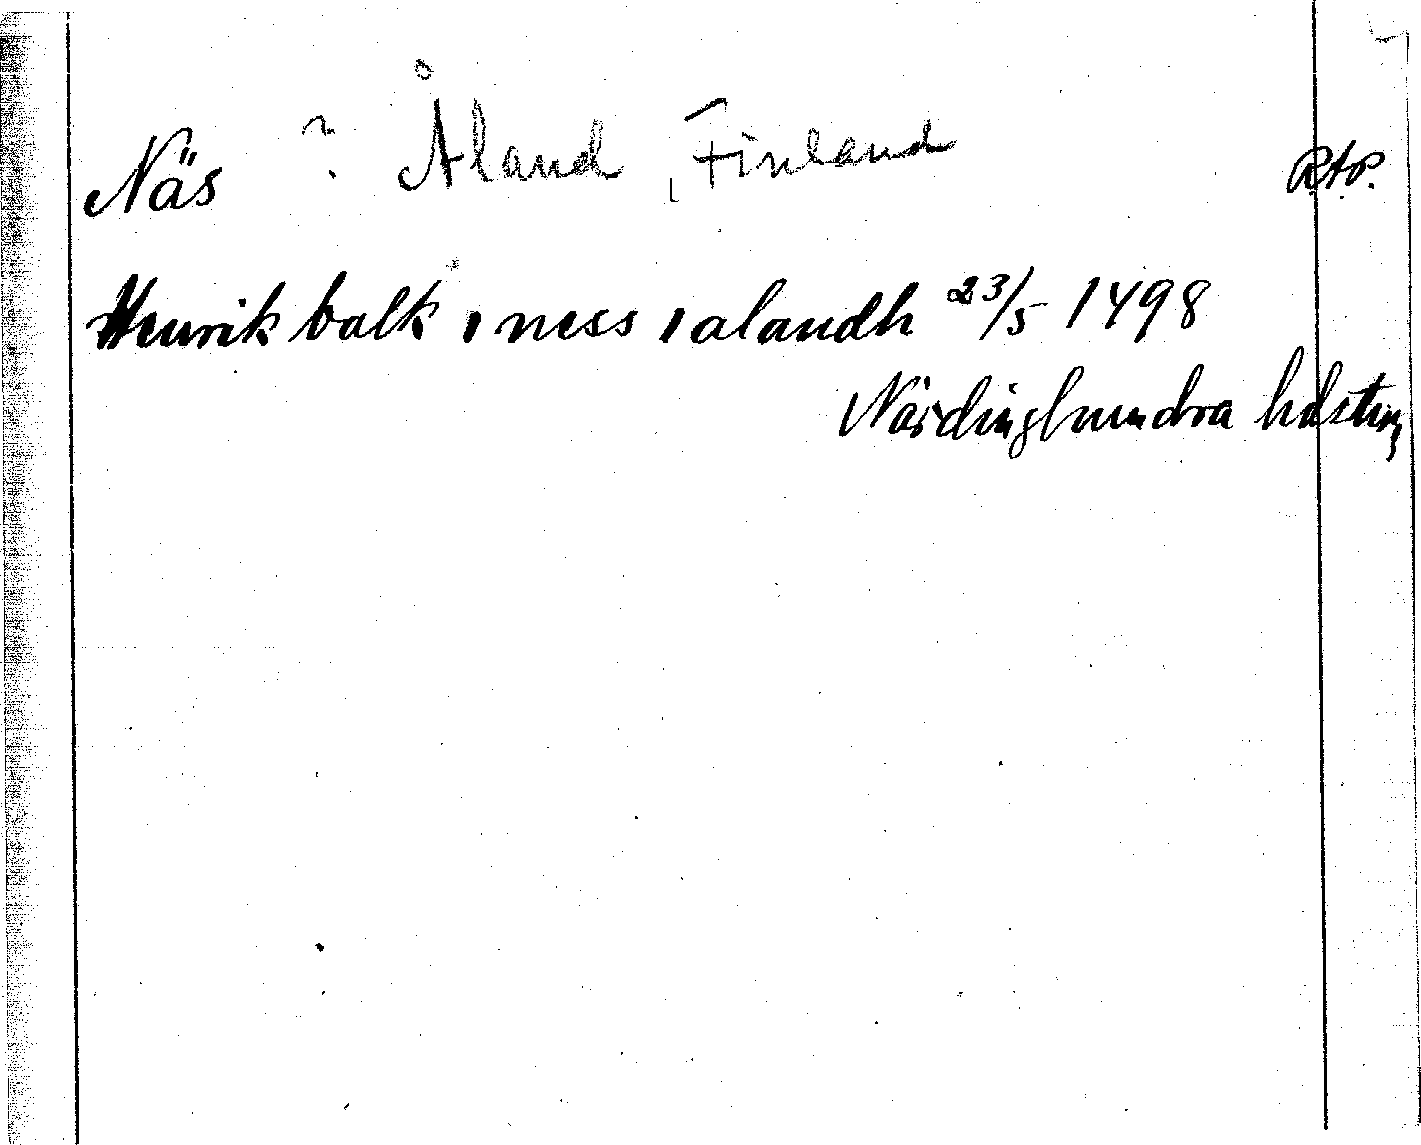 Näs ? Åland, Finland RAP.
Henrik balk i ness i alandh 23/5 1498
Närdinghundra hdsting